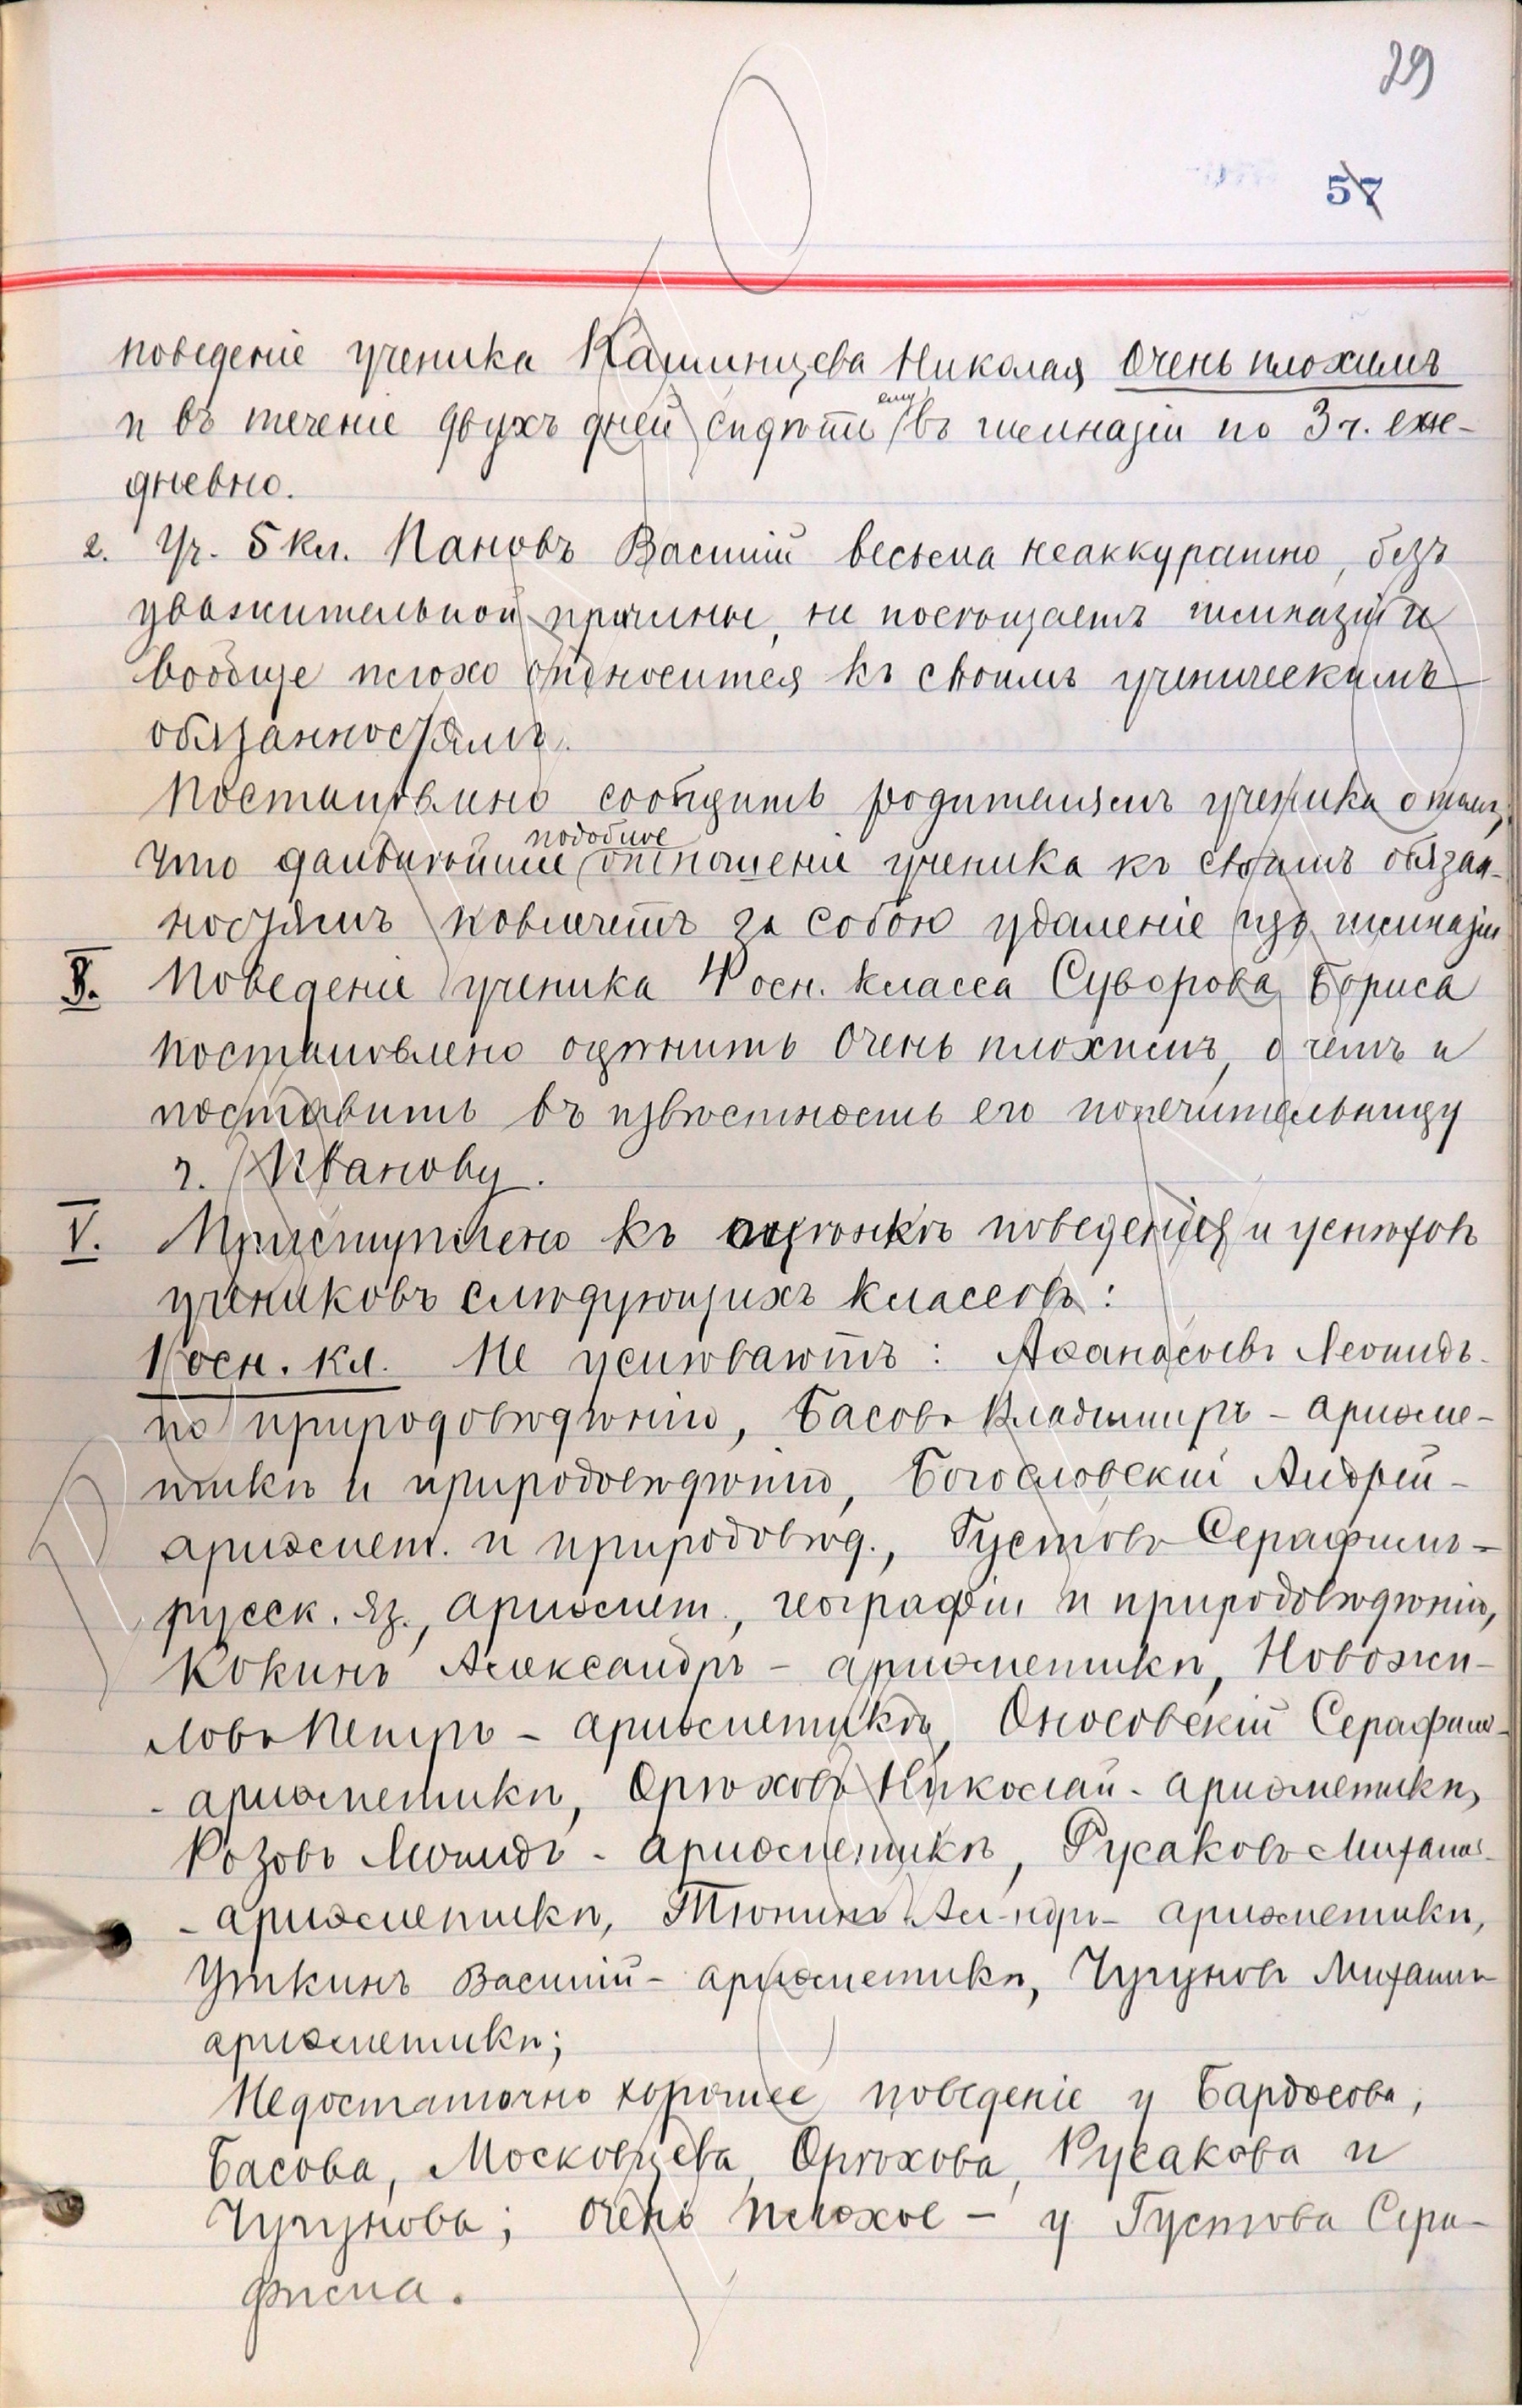 29
57
поведеніе ученика Камынцева Николая очень плохимъ
и въ теченіе двухъ дней сидѣть ему въ гимназіи по 3 ч. еже-
дневно.
2. Уч. 5 кл. Пановъ Василій весьма неаккуратно, безъ
уважительной причины, не посѣщаетъ гимназіи и
вообще плохо относится къ своимъ ученическимъ
обязанностямъ.
Постановлено сообщить родителямъ ученика о томъ,
что дальнѣйшее подобное отношеніе ученика къ своимъ обязан-
ностямъ повлечетъ за собою удаленіе изъ гимназіи
Поведеніе ученика 4 осн. класса Суворова Бориса
постановлено оцѣнить очень плохимъ, о чемъ и
поставить въ извѣстность его попечительницу
г. Иванову.
V. Приступлено къ оцѣнкѣ поведенія и успѣховъ
учениковъ слѣдующихъ классовъ:
1 осн. кл. Не успѣваютъ: Аѳанасьевъ Леонидъ-
по природовѣдѣнію, Басовъ Владимиръ - ариѳме-
тикѣ и природовѣдѣнію, Богословскій Андрей -
ариѳмет. и природовѣд., Густовъ Серафимъ -
русск. яз., ариѳмет., географіи и природовѣдѣнію,
Кокинъ Александръ - ариѳметикѣ, Новожи-
ловъ Петръ - ариѳметикѣ, Оносовскій Серафимъ-
- ариѳметикѣ, Орѣховъ Николай - ариѳметикѣ,
Розовъ Леонидъ - ариѳметикѣ, Русаковъ Михаилъ-
- ариѳметикѣ, Тюнинъ Ал-ндръ - ариѳметикѣ,
Уткинъ Василій - ариѳметикѣ, Чугуновъ Михаилъ-
ариѳметикѣ;
Недостаточно хорошее поведеніе у Бардосова,
Басова, Московцева, Орѣхова, Русакова и
Чугунова; очень плохое - у Густова Сера-
фима.